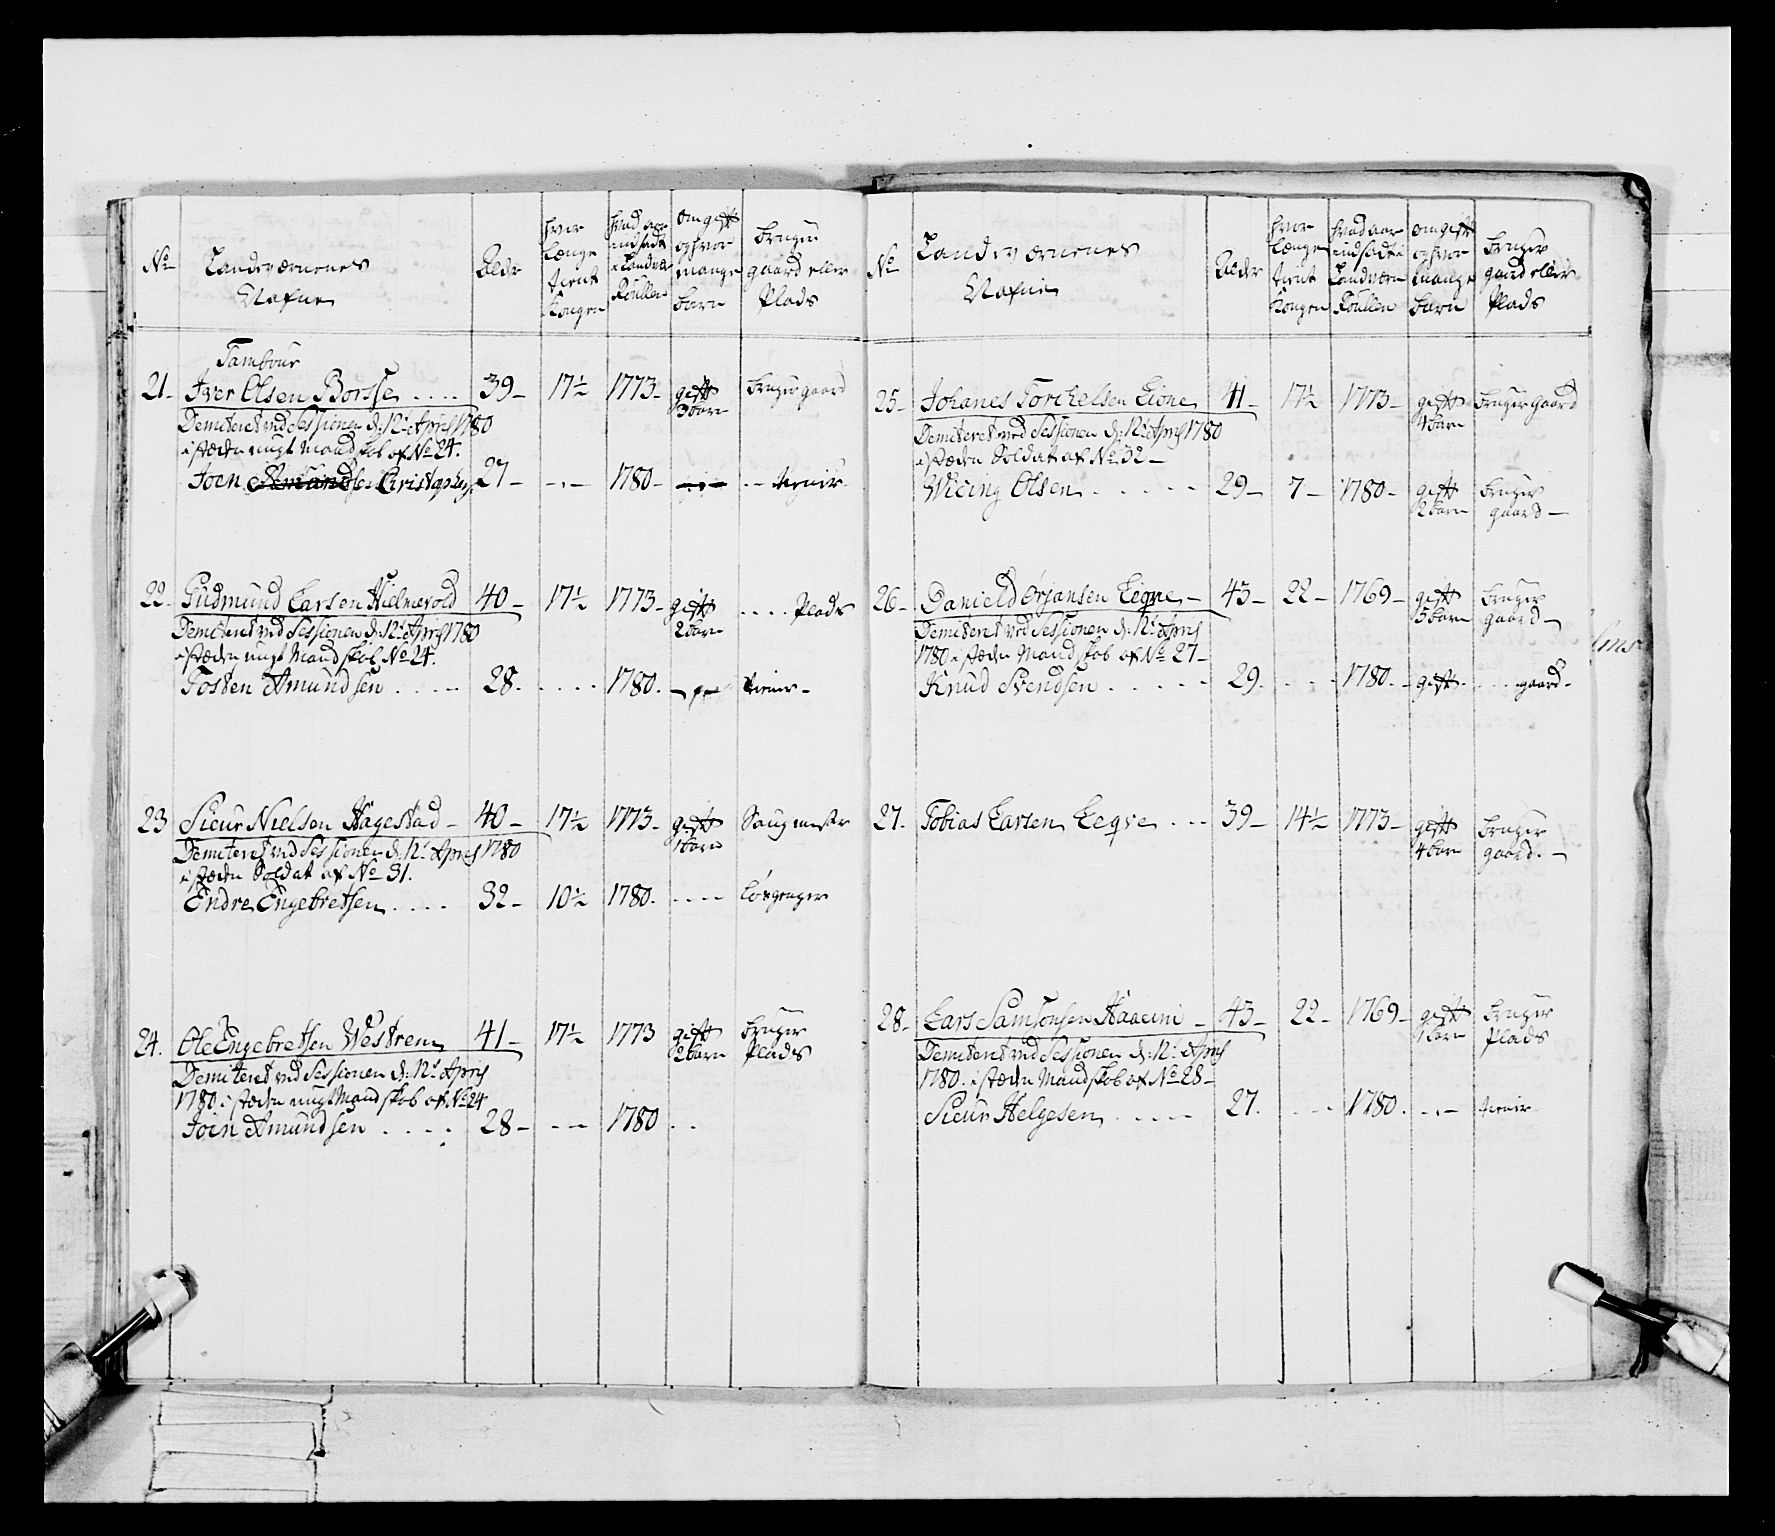 No
Landeværnenes
Nafne
Alder
hvor
længe
tient
Kongen
hvad aar
indsadt
i Landvæ
Roullen
om gift
og hvor
mange
børn
bruger
gaard eller
Plads
Tambour
21. Iver Olsen Borsse .... 39 - 17½ 1773 - gift bruger gaard
3 børn
Demiteret ved Sessionen d: 12te April 1780
i stæden ungt Mandskob af No 24.
Joen Christophers: 27 - -.- 1780 - -- tienir
22. Gudmund Larsen Hielmevold 40 - 17½ 1773 - gift .... Plads
2 børn
Demiteret ved Sessionen d: 12te April 1780
i stæden ungt Mandskob No 24.
Tosten Amundsen .... 28. .... 1780. tienir -
23 Sieur Nielsen Hagestad - 40 - 17½ 1773 - gift Saugmester
1 børn
Demiteret ved Sessionen d: 12te April 1780
i stæden Soldat af No 31.
Endre Engebretsen .... 32 - 10½ 1780. .... Løsgenger
24. Ole Engebretsen Westrem 41 - 17½ 1773 gift bruger
2 børn Plads
Demiteret ved Sessionen d: 12te April
1780. i stæden ungt Mandskob af No 24
Joen Amundsen .... 28 - --- 1780 ..
No
Landeværnenes
Nafne
Alder
hvor
længe
tient
Kongen
hvad aar
indsadt i
Landværn
Roullen
om gift
og hvor
mange
børn
bruger
gaard eller
Plads
25 - Johanes Torchelsen Lione 41 - 17½ 1773 - gift bruger Gaard
4 børn
Demiteret ved Sessionen d: 12te April 1780
i stæden Soldat af No 32 -
Wicing Olsen ..... 29 - 7 - 1780 - gift bruger
2 børn gaard -
26 - Danield Ørjansen Leqve - 43 - 22 - 1769 - gift bruger
5 børn gaard -
Demiteret ved Sessionen d: 12te April
1780 i stæden Mandskob af No 27 -
Knud Svendsen ..... 29. ... 1780. - gift - .... gaard -
27. Tobias Larsen Leqve ... 39 - 14½ 1773 - gift bruger
4 børn gaard. -
28 - Lars Samsonsen Haaeim - 43 - 22 - 1769 - gift bruger
1 børn Plads
Demiteret ved Sessionen d: 12te April
1780. i stæden Mandskob af No 28 -
Sieur Helgesen ..... 27. ... 1780. -.- tienir